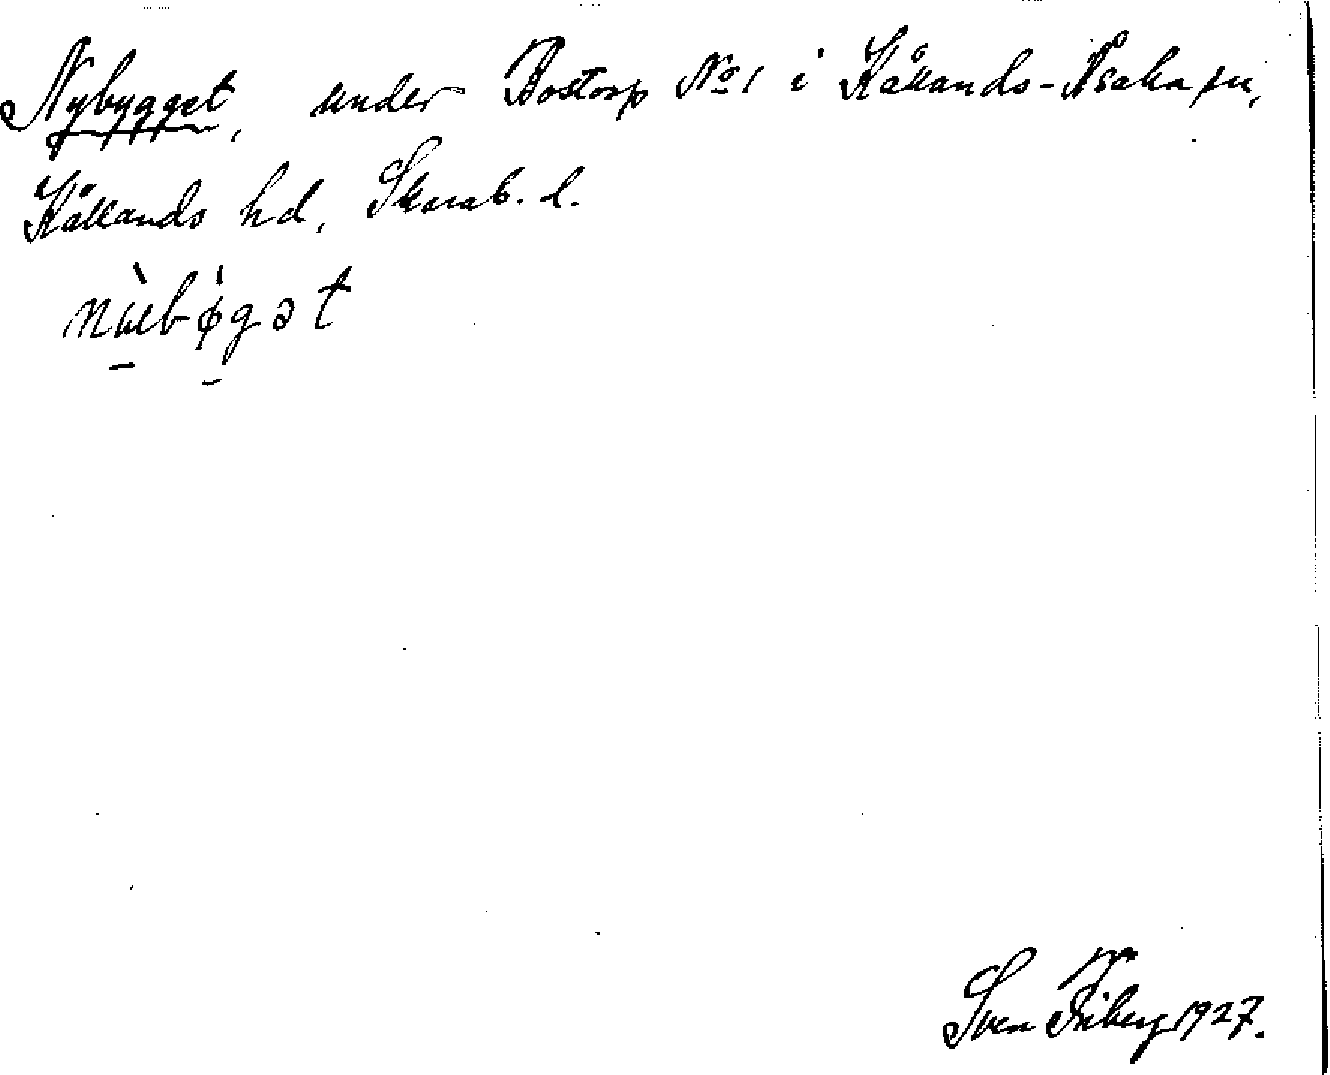 Nybygget, under Bostorp No 1 i Kållands-Åsaka sn,
Kållands hd, Skarab. l.
Sven Friberg 1927.